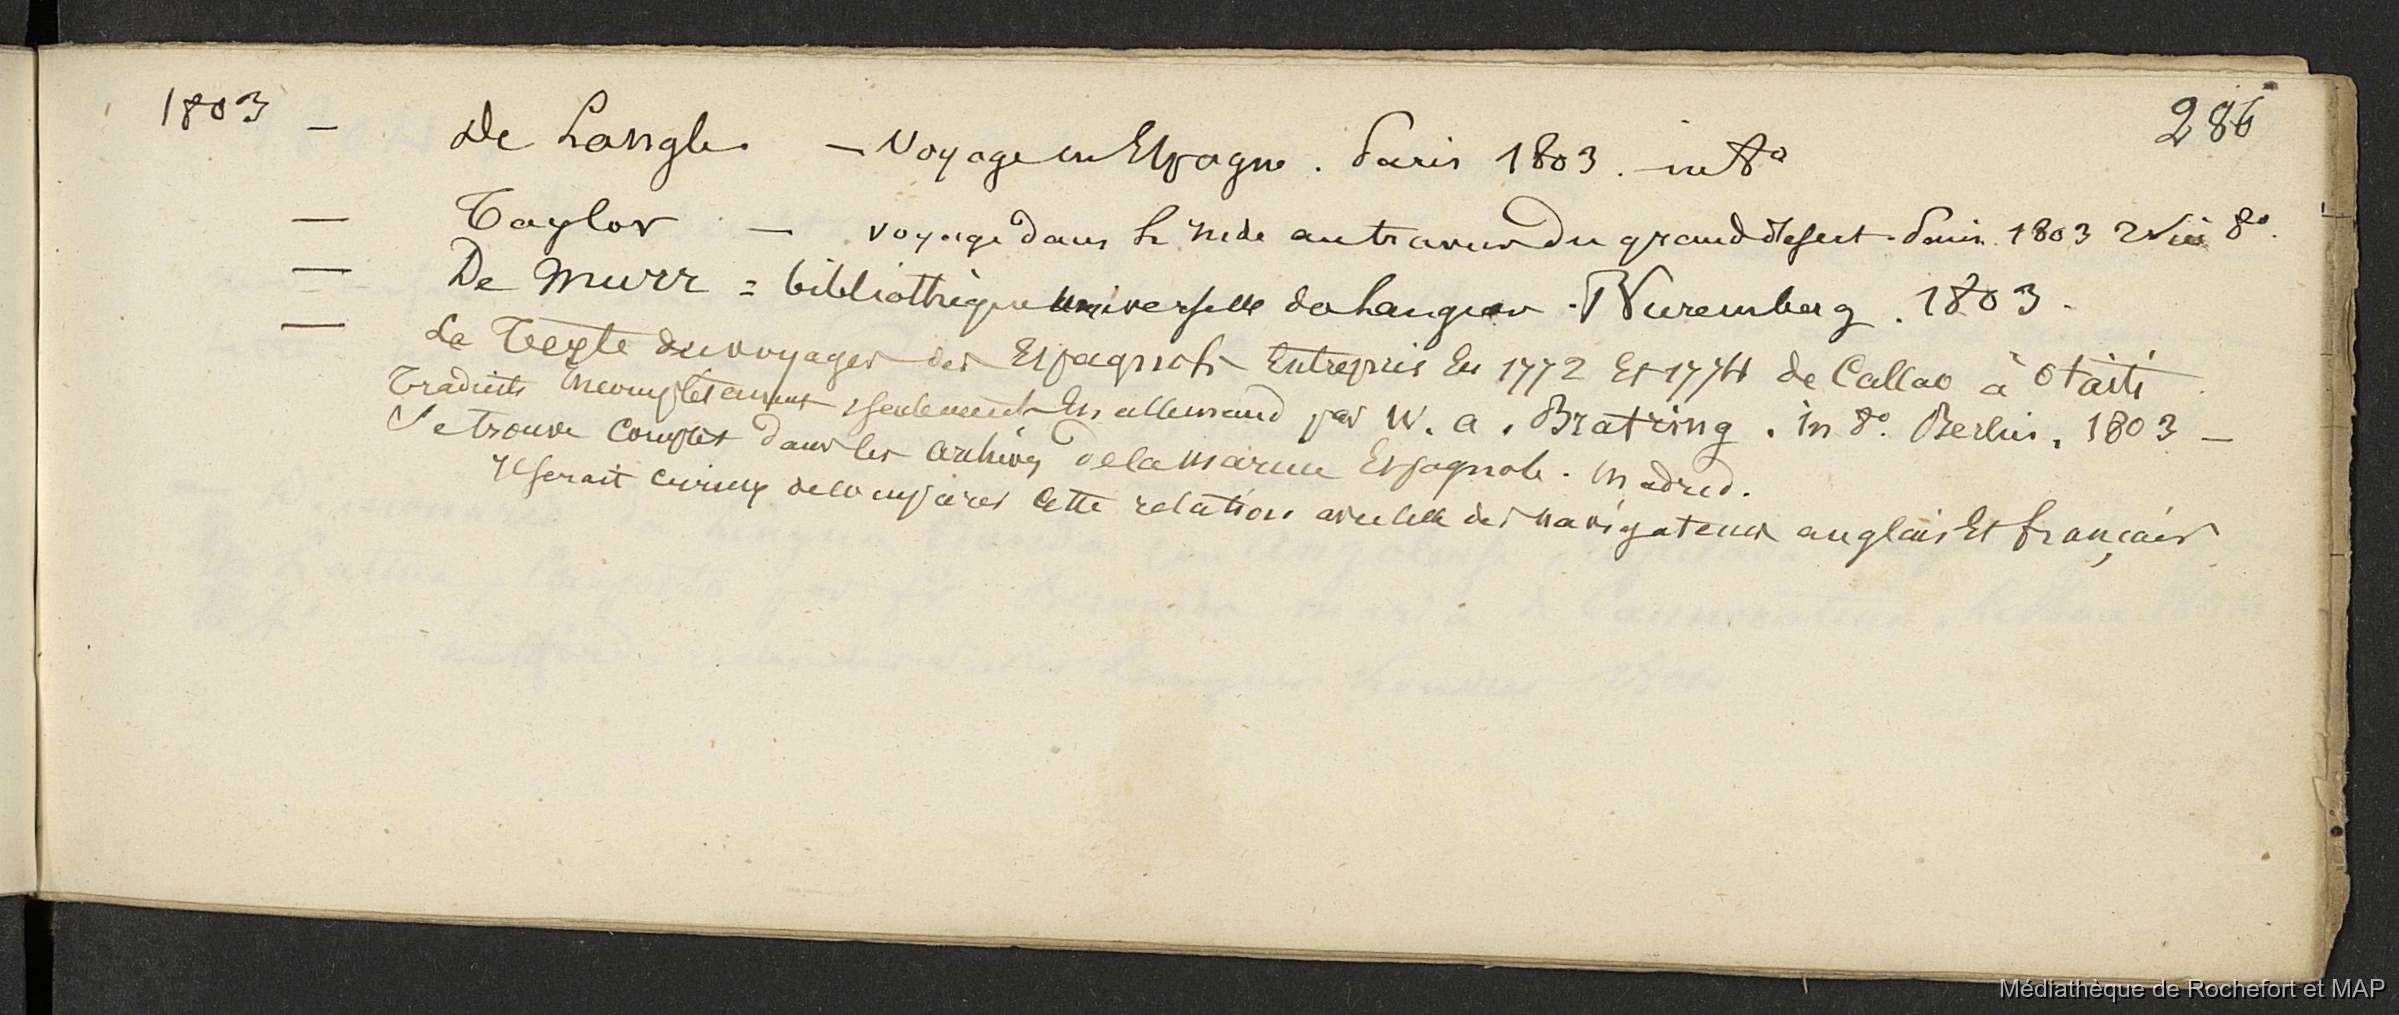 286
1803 — De Langle. — Voyage en Espagne. Paris 1803. in 8°
— Taylor — voyage dans l'inde au travers du grand desert. Paris. 1803 2 v in 8°.
— De Murr = bibliothèque universelle de Langues. Nuremberg. 1803.
— Le Texte des voyages des Espagnols Entrepris En 1772 Et 1774 de Callao à Otaïti
Traduits incomplètement seulement En allemand par W. a. Bratring. in 8°. Berlin. 1803 —
Se trouve complet dans les archives de la marine Espagnole. Madrid.
il serait curieux de comparer cette relation avec celle des navigateurs anglais Et français
Médiathèque de Rochefort et MAP